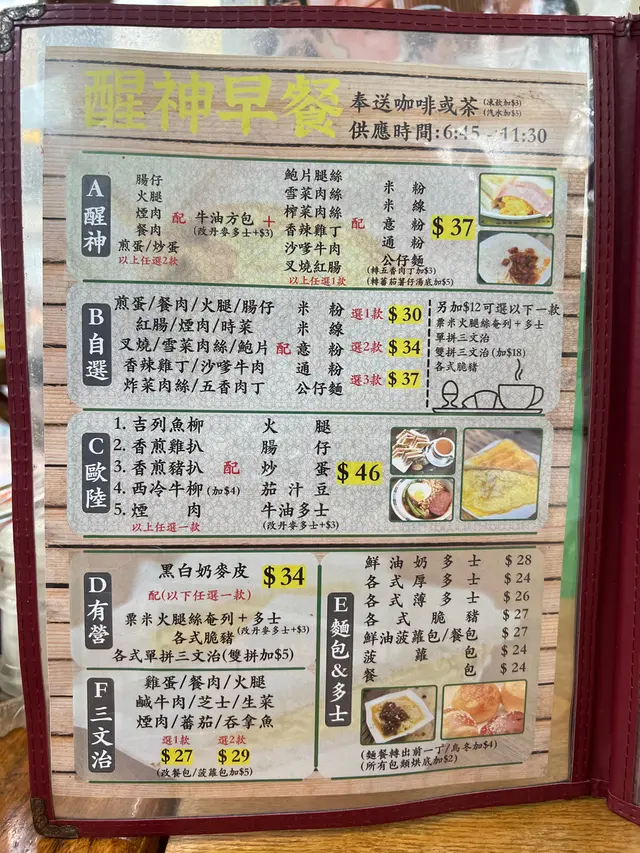 醒神早餐
奉送咖啡或茶(凍飲加$3)(汽水加$5)
供應時間:6:45 - 11:30
A 醒神
腸仔
火腿
煙肉
餐肉
煎蛋/炒蛋
以上任選2款
配 牛油方包 +
(改丹麥多士+$3)
鮑片腿絲
雪菜肉絲
榨菜肉絲
香辣雞丁
沙嗲牛肉
叉燒紅腸
以上任選1款
配
米粉
米線
意粉
通粉
公仔麵
(轉五香肉丁加$3)
(轉蕃茄薯仔湯底加$5)
$37
B 自選
煎蛋/餐肉/火腿/腸仔
紅腸/煙肉/時菜
叉燒/雪菜肉絲/鮑片
香辣雞丁/沙嗲牛肉
炸菜肉絲/五香肉丁
配
米粉
米線
意粉
通粉
公仔麵
選1款 $30
選2款 $34
選3款 $37
另加$12可選以下一款
粟米火腿絲奄列+多士
單拼三文治
雙拼三文治(加$18)
各式脆豬
C 歐陸
1. 吉列魚柳
2. 香煎雞扒
3. 香煎豬扒
4. 西冷牛柳(加$4)
5. 煙肉
以上任選一款
配
火腿
腸仔
炒蛋
茄汁豆
牛油多士
(改丹麥多士+$3)
$46
D 有營
黑白奶麥皮 $34
配(以下任選一款)
粟米火腿絲奄列+多士
(改丹麥多士+$3)
各式脆豬
各式單拼三文治(雙拼加$5)
E 麵包&多士
鮮油奶多士 $28
各式厚多士 $24
各式薄多士 $26
各式脆豬 $27
鮮油菠蘿包/餐包 $27
菠蘿包 $24
餐包 $24
(麵餐轉出前一丁/烏冬加$4)
(所有包類烘底加$2)
F 三文治
雞蛋/餐肉/火腿
鹹牛肉/芝士/生菜
煙肉/蕃茄/吞拿魚
選1款 選2款
$27 $29
(改餐包/菠蘿包加$5)